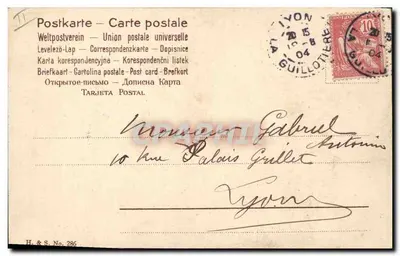 Postkarte – Carte postale
Weltpostverein – Union postale universelle
Levelező-Lap – Correspondenzkarte – Dopisnice
Karta korespondencyjna – Korespondenční listek
Briefkaart – Cartolina postale – Post card – Brefkort
Открытое письмо – Дописна Карта
Tarjeta Postal
LYON
LA GUILLOTIERE
04
10
Monsieur Gabriel
Antonin
10 Rue Palais Grillet
Lyon
H. & S. No. 286